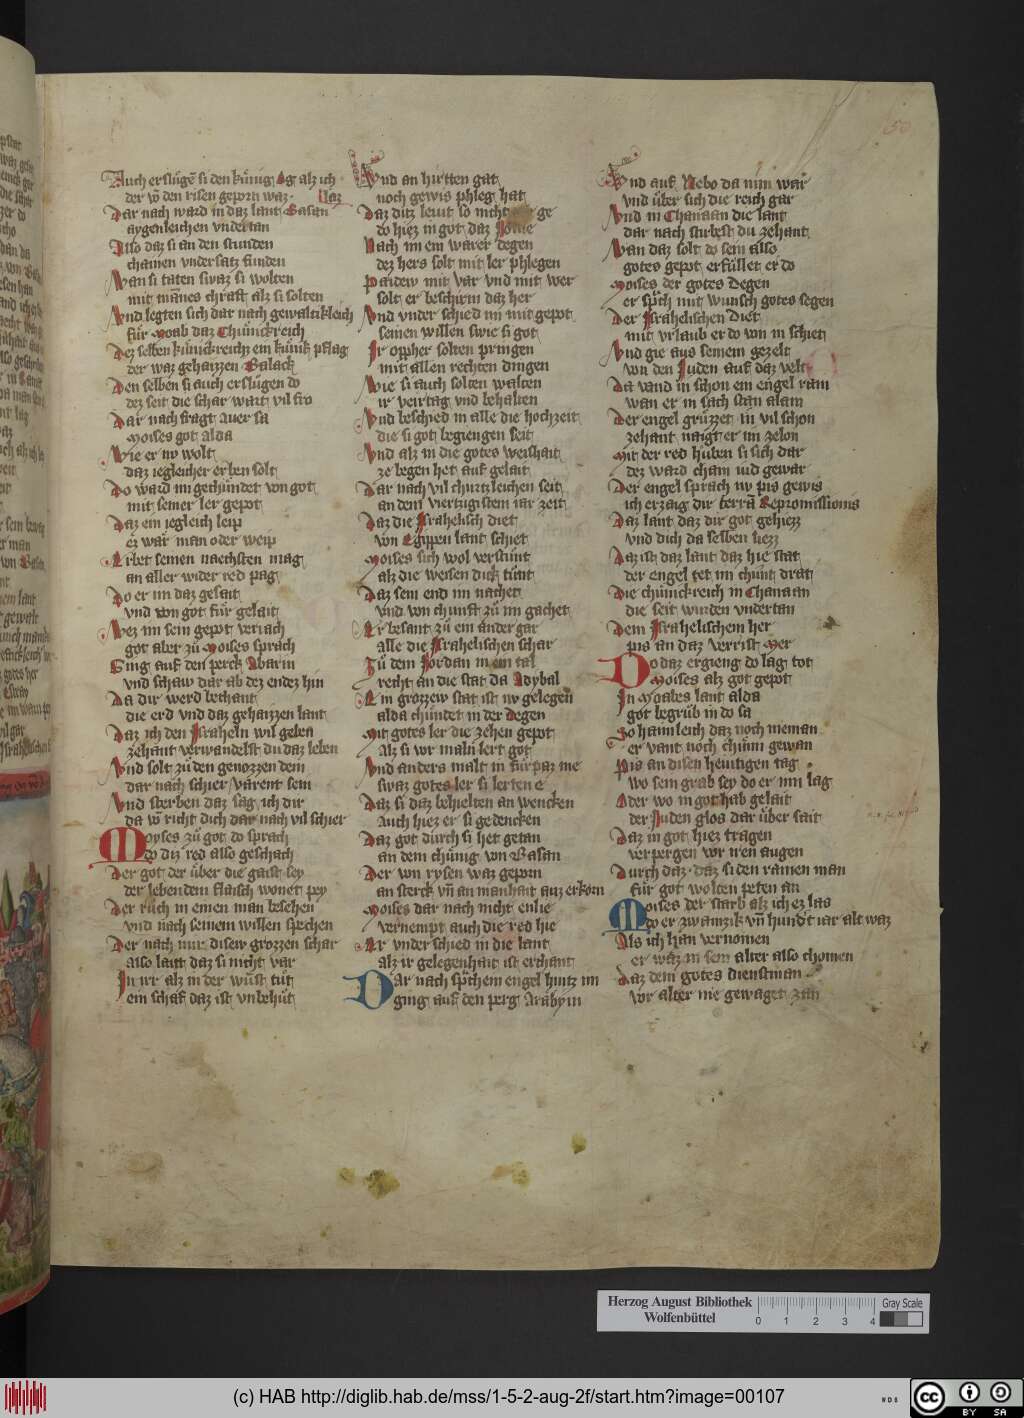 50
Auch erslůgē si den kůnig Og alz ich
der võ den risen geporn waz
Dar nach ward in daz lant Basan
aygenleichen vndertan
Also daz si an den stunden
chainen vndersatz funden
Wan si taten swaz si wolten
mit mānes chraft alz si solten
Vnd legten sich dar nach gewaltikleich
fůr Moab daz Chůnickreich
Dez selben kůnickreichz ein kůnik pflag
der waz gehaizzen Balack
Den selben si auch erslůgen do
dez seit die schar wart vil fro
Dar nach fragt auer sa
Moises got alda
Wie er nv wolt
daz iegleicher erben solt
Do ward im gechůndet von got
mit seiner ler gepot
Daz ein iegleich leip
ez wār man oder weip
Erbet seinen naechsten mag
an aller wider red pag
Do er im daz gesait
vnd von got fůr gelait
Wez im sein gepot veriach
got aber zů Moises sprach
Ging auf den perck Abarin
vnd schaw dar ab dez endez hin
Da dir werd bechant
die erd vnd daz gehaizzen lant
Daz ich den Israheln wil geben
zehant verwandelst du daz leben
Vnd solt zů den genozzen dein
dar nach schier vārent sein
Vnd sterben daz sag ich dir
da võ richt dich dar nach vil schier
Moyses zů got do sprach
do diz red also geschach
Der got der ůber die gaist sey
der lebendem flaisch wonet pey
Der růch in einen man besehen
vnd nach seinem willen sprechen
Der nach mir diser grozzen schar
also lait daz si nicht var
In irr alz in der wůst tůt
ein schaf daz ist vnbehůt
Vnd an hirtten gat
noch gewis phleg hat
Daz ditz leiut so nicht ge
do hiez in got daz Josue
Nach im ein warer degen
dez hers solt mit ler phlegen
Paidew mit var vnd mit wer
solt er beschirm daz her
Vnd vnder schied im mit gepot
seinen willen swie si got
Ir oppher solten pringen
mit allen rechten dingen
Wie si auch solten walten
ir veirtag vnd behalten
Vnd beschied in alle die hochzeit
die si got begiengen seit
Vnd alz in die gotes weishait
ze legen het auf gelait
Dar nach vil churtzleichen seit
an dem viertzigistem iar zeit
Daz die Israhelisch diet
von Egippen lant schiet
Moises sich wol verstůnt
alz die weisen dick tůnt
Daz sein end im nachet
vnd von chunft zů im gachet
Er besant zů ein ander gar
alle die Israhelischen schar
Zů dem Jordan in ein tal
recht an die stat da Adybal
Ein grozzew stat ist nv gelegen
alda chůndet in der degen
Mit gotes ler die zehen gepot
Alz si vor maln lert got
Vnd anders malt in fůrpaz me
swaz gotes ler si lerten e
Daz si daz behielten an wencken
Auch hiez er si gedencken
Daz got durch si het getan
an dem chůnig von Basan
Der von rysen waz geporn
an sterck vñ an manhait auz erkorn
Moises dar nach nicht enlie
vernempt auch die red hie
Er vnder schied in die lant
alz ir gelegenhait ist erchant
Dar nach sprchem engel hintz im
ging auf den perg Arabyin
Vnd auf Nebo da nim war
vnd ůber sich die reich gar
Vnd in Chanaan die lant
dar nach stirbest du zehant
Wan daz solt do sein also
gotes gepot erfůllet er do
Moises der gotes degen
er sprch mit wunsch gotes segen
Der Israhelischen diet
mit vrlaub er do von in schiet
Vnd gie aus seinem gezelt
von den Juden auf daz velt
Da vand in schon ein engel rain
wan er in sach stan alain
Der engel grůzzet in vil schon
zehant naigt er im zelon
Mit der red huben si sich dar
dez ward cham iud gewar
Der engel sprach nv pis gewis
ich erzaig dir terrā Repromissionis
Daz lant daz dir got gehiezz
vnd dich da selben liezz
Daz ist daz lant daz hie stat
der engel tet im chunt drat
Die chůnickreich in Chanaan
die seit wurden vndertan
Dem Israhelischem her
pis an daz verrist Mer
Do daz ergieng do lag tot
Moises alz got gepot
In Moabes lant alda
got begrůb in do sa
So haimleich daz noch nieman
er vant noch chůnn gewan
Pis an disen heutigen tag
wo sein grab sey do er inn lag
Oder wo in got hab gelait
der Juden glos dar ůber sait
Daz in got hiez tragen
verpergen vor iren augen
Durch daz daz si den rainen man
fůr got wolten peten an
Moises der starb alz ich ez las
do er zwaintzik vñ hundert iar alt waz
Als ich han vernomen
er waz in sein alter also chomen
Daz dem gotes dienstman
vor alter nie gewaget zan
Herzog August Bibliothek
Wolfenbüttel
0 1 2 3 4
Gray Scale
(c) HAB http://diglib.hab.de/mss/1-5-2-aug-2f/start.htm?image=00107
WDB
CC BY SA